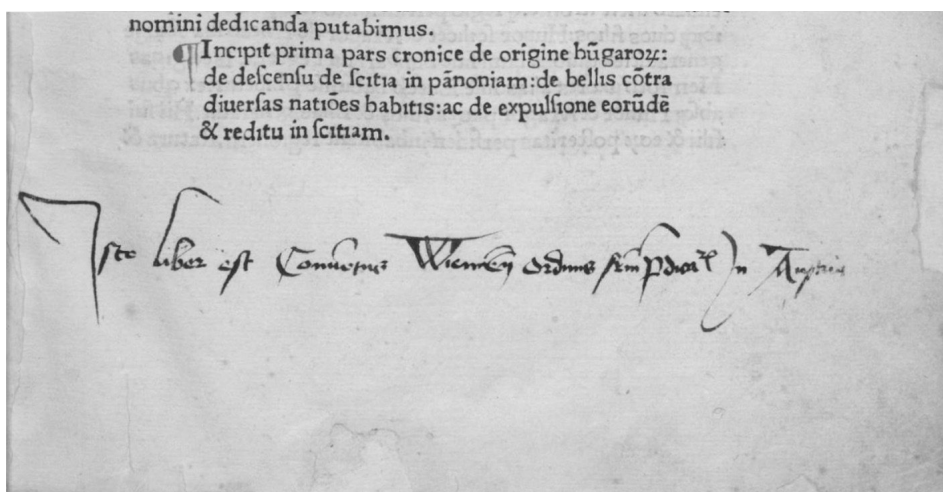 nomini dedicanda putabimus.
¶Incipit prima pars cronice de origine hūgaroꝝ:
de descensu de scitia in pānoniam:de bellis cōtra
diuersas natiōes habitis:ac de expulsione eorūdē
& reditu in scitiam.
Iste liber est Conventus Wiennēn ordinis frm̄ p̄dicaꝶ In Austria